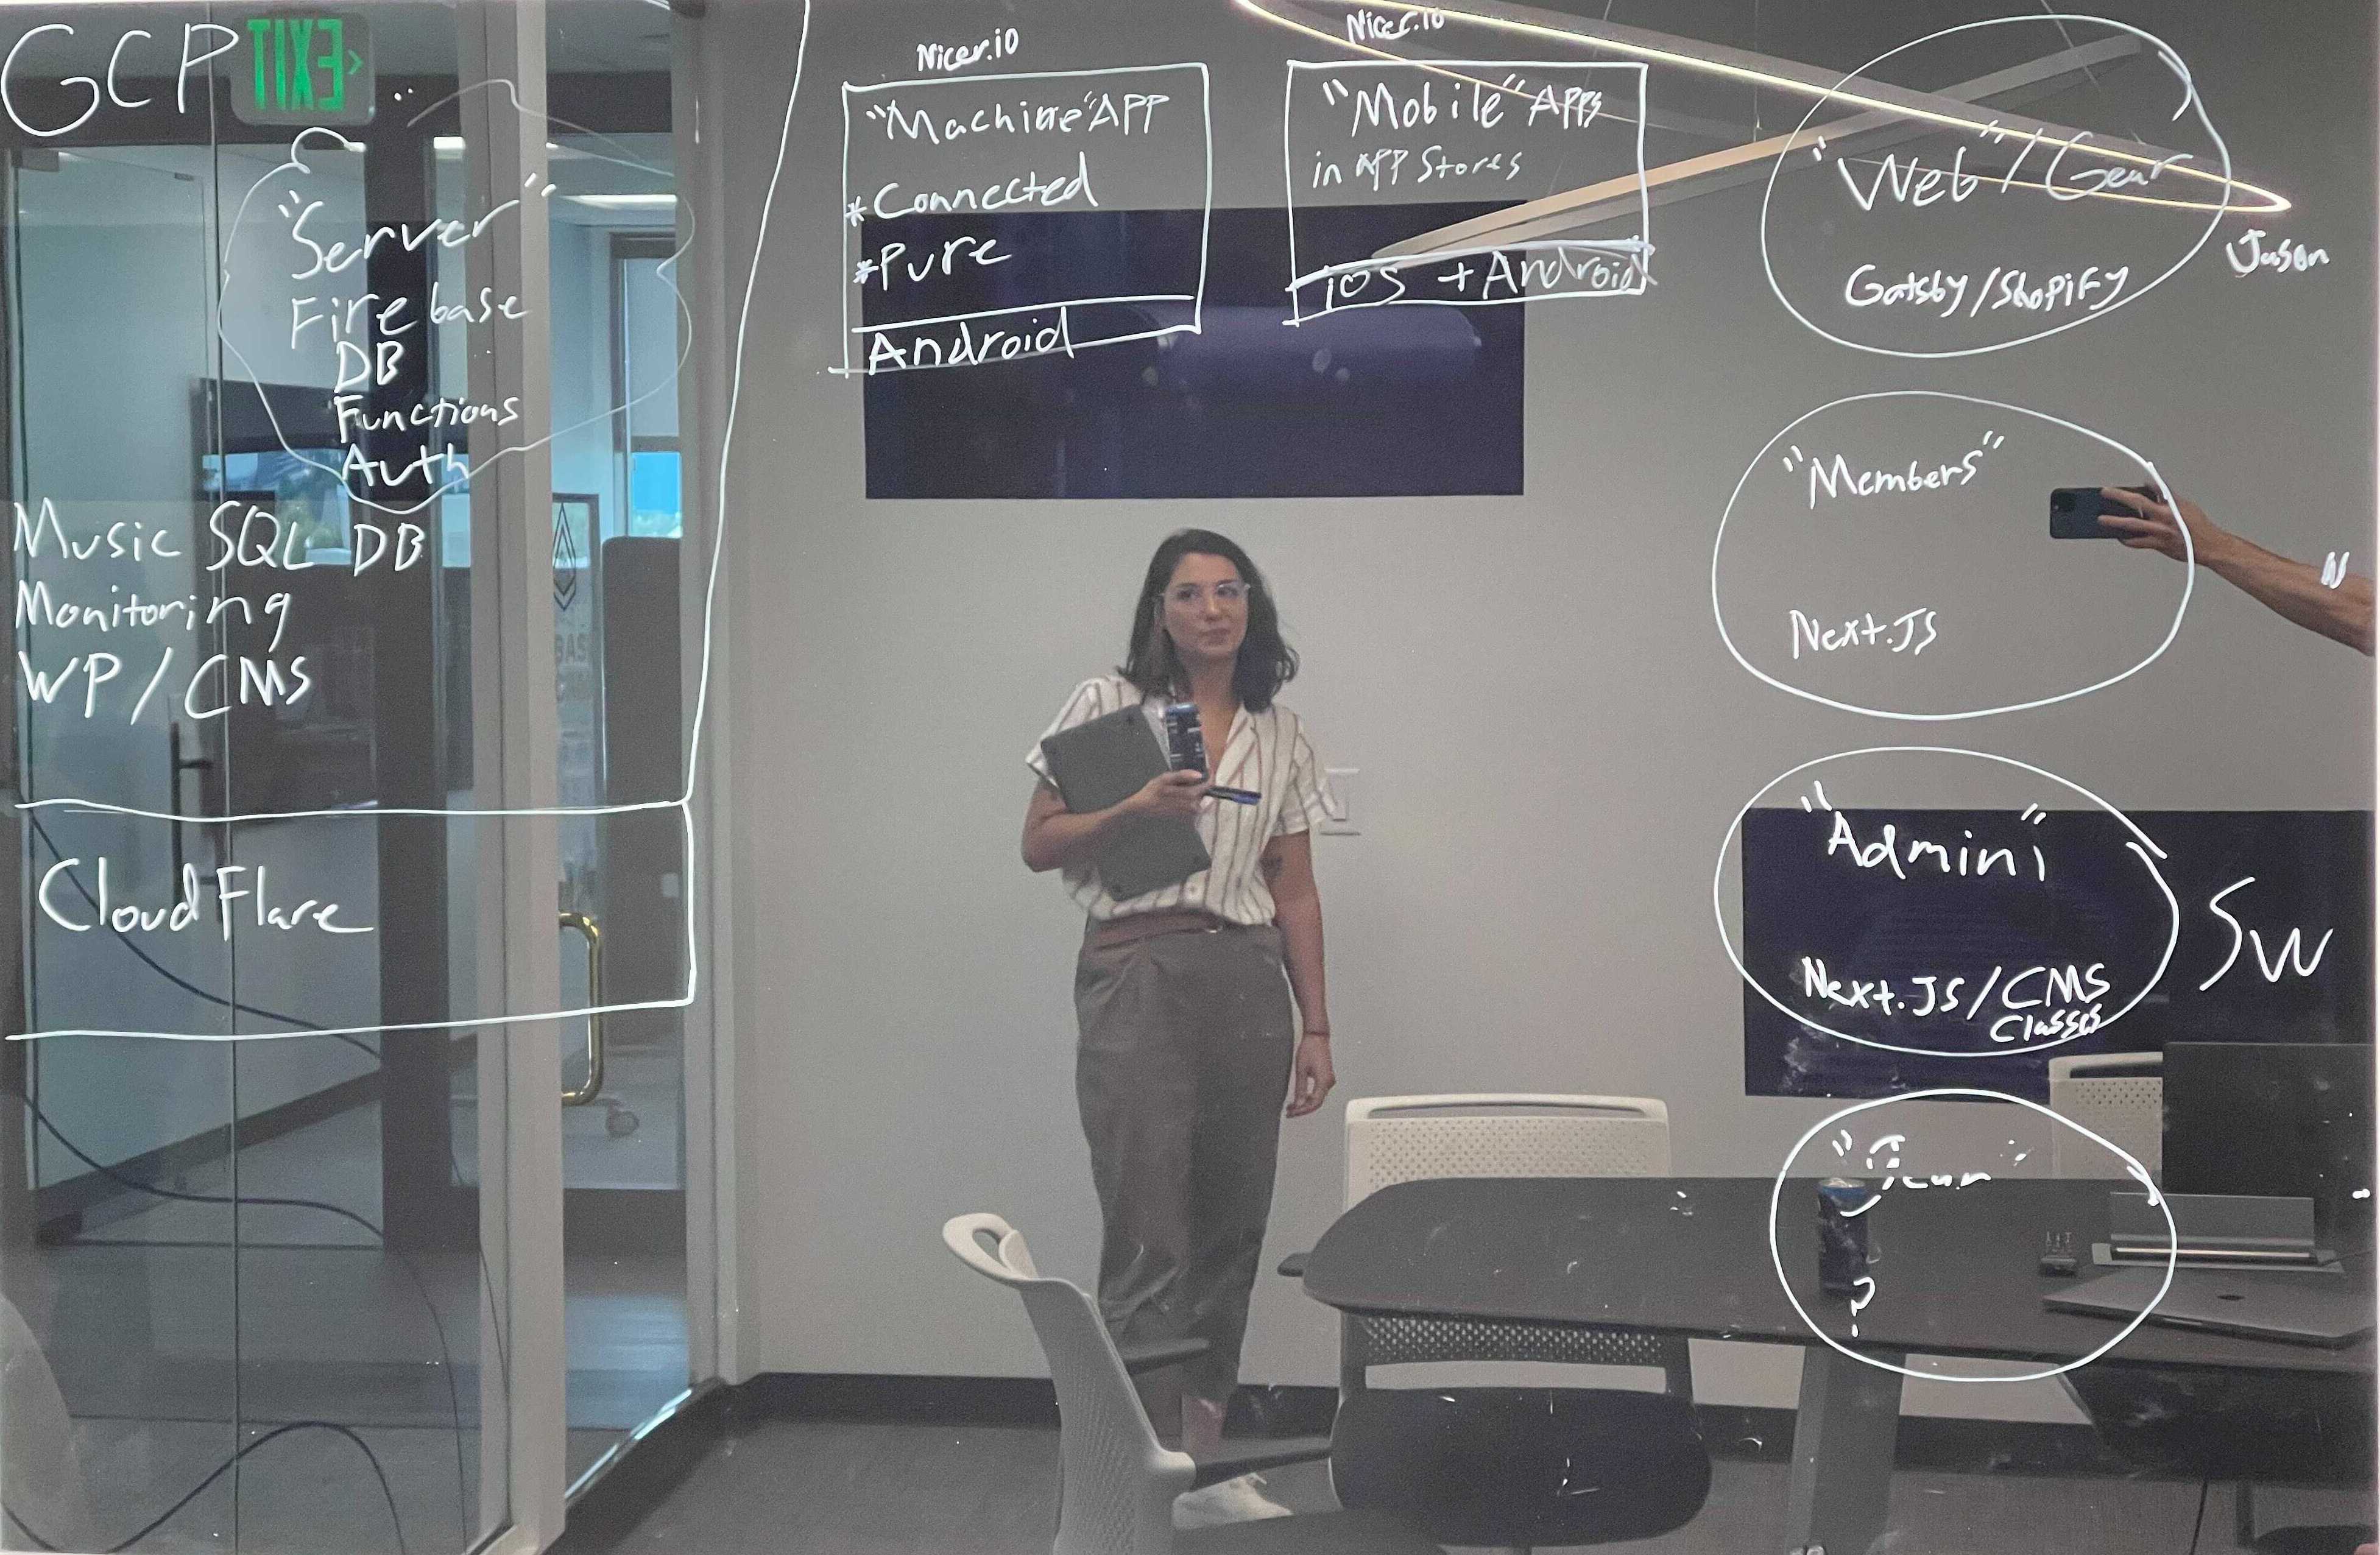 GCP
EXIT
"Server"
Firebase
DB
Functions
Auth
Music SQL DB
Monitoring
WP/CMS
CloudFlare
Nicer.io
"Machine" APP
*Connected
*Pure
Android
Nicer.io
"Mobile" APPs
in APP Stores
iOS + Android
"Web"/Gear
Gatsby/Shopify
Jason
"Members"
Next.JS
N
"Admin"
Next.JS/CMS
Classes
SW
?